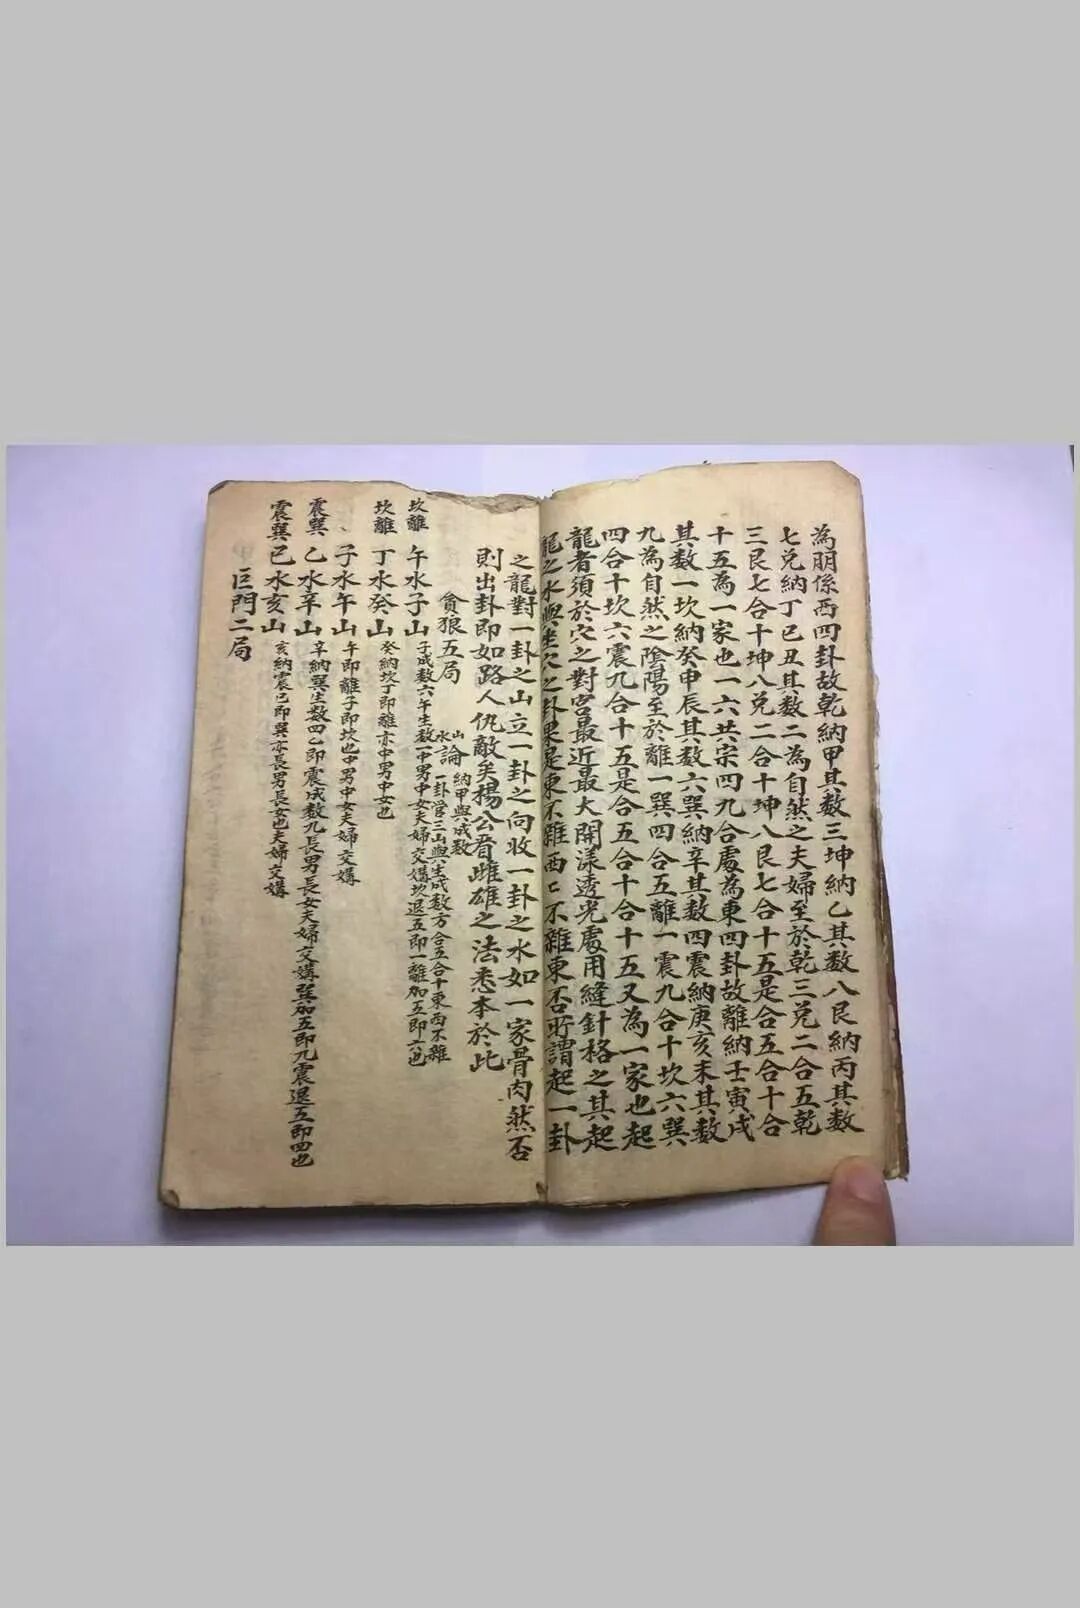 為朋係西四卦故乾納甲其数三坤納乙其数八艮納丙其数
七兑納丁巳丑其数二為自然之夫婦至於乾三兑二合五乾
三艮七合十坤八兑二合十坤八艮七合十五是合五合十合
十五為一家也一六共宗四九合處為東四卦故離納壬寅戌
其数一坎納癸申辰其数六巽納辛其数四震納庚亥未其数
九為自然之陰陽至於離一巽四合五離一震九合十坎六巽
四合十坎六震九合十五是合五合十合十五又為一家也起
龍者須於穴之對宮最近最大開漾透光處用縫針格之其起
龍之水與坐穴之卦果是東不雜西西不雜東否所謂起一卦
之龍對一卦之山立一卦之向收一卦之水如一家骨肉然否
則出卦即如路人仇敵矣楊公看雌雄之法悉本於此
貪狼五局 山水論 納甲與成数 一卦管三山與生成数方合五合十東西不雜
坎離 午水子山 子成数六午生数一中男中女夫婦交媾坎退五即一離加五即六也
坎離 丁水癸山 癸納坎丁即離亦中男中女也
子水午山 午即離子即坎也中男中女夫婦交媾
震巽 乙水辛山 辛納巽生数四乙即震成数九長男長女夫婦交媾巽加五即九震退五即四也
震巽 巳水亥山 亥納震巳即巽亦長男長女也夫婦交媾
巨門二局